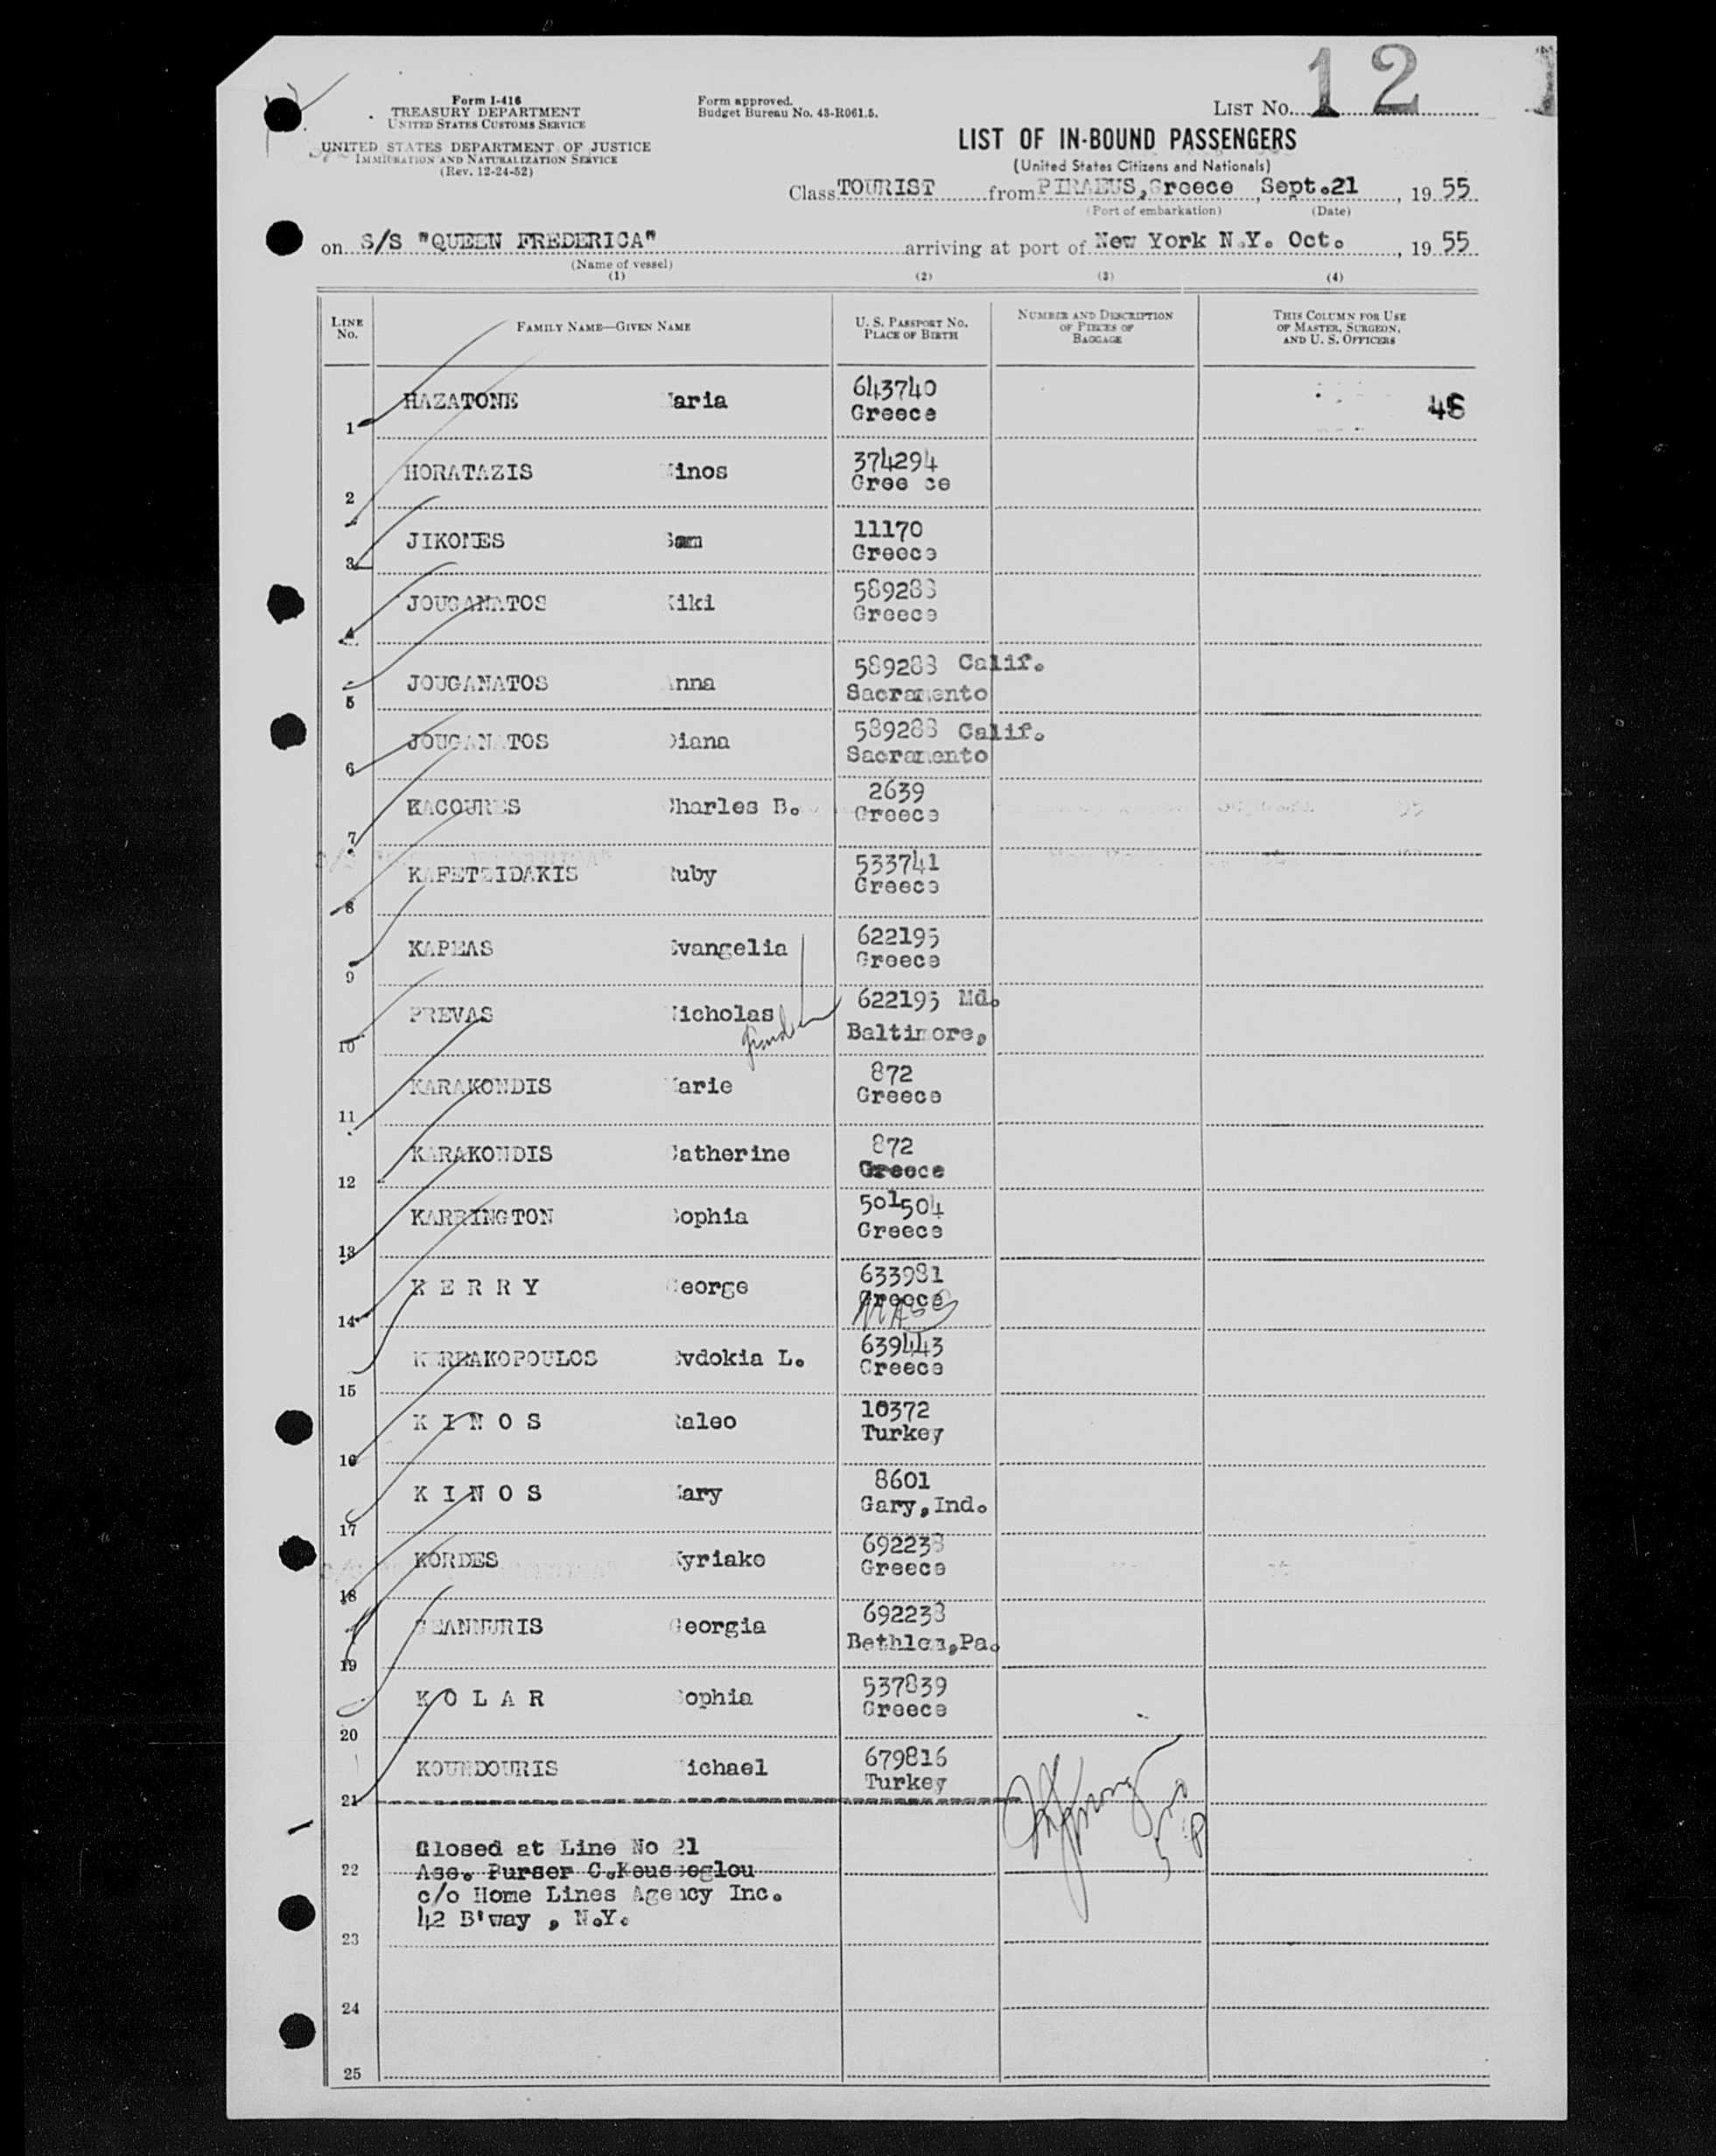 LIST No. 12
Form I-416
TREASURY DEPARTMENT
UNITED STATES CUSTOMS SERVICE
UNITED STATES DEPARTMENT OF JUSTICE
IMMIGRATION AND NATURALIZATION SERVICE
(Rev. 12-24-52)
Form approved.
Budget Bureau No. 43-R061.5.
LIST OF IN-BOUND PASSENGERS
(United States Citizens and Nationals)
Class TOURIST from PIRAEUS, Greece, Sept. 21, 19 55
(Port of embarkation) (Date)
on S/S "QUEEN FREDERICA" arriving at port of New York N.Y. Oct., 19 55
(Name of vessel)
(1) (2) (3) (4)
LINE No. FAMILY NAME—GIVEN NAME U. S. PASSPORT No. PLACE OF BIRTH NUMBER AND DESCRIPTION OF PIECES OF BAGGAGE THIS COLUMN FOR USE OF MASTER, SURGEON, AND U. S. OFFICERS
1 HAZATONE Maria 643740 Greece
2 HORATAZIS Minos 374294 Gree ce
3 JIKOMES Sam 11170 Greece
4 JOUGANATOS Kiki 589288 Greece
5 JOUGANATOS Anna 589288 Calif. Sacramento
6 JOUGANATOS Diana 589288 Calif. Sacramento
7 KACOURES Charles B. 2639 Greece
8 KAFETZIDAKIS Ruby 533741 Greece
9 KAPEAS Evangelia 622195 Greece
10 PREVAS Nicholas 622195 Md. Baltimore,
11 KARAKONDIS Marie 872 Greece
12 KARAKONDIS Catherine 872 Greece
13 KARRINGTON Sophia 501504 Greece
14 K E R R Y George 633981 Greece MASS
15 KERRAKOPOULOS Evdokia L. 639443 Greece
16 K I N O S Raleo 10372 Turkey
17 K I N O S Mary 8601 Gary, Ind.
18 KORDES Kyriake 692238 Greece
19 GEANNURIS Georgia 692238 Bethlem, Pa.
20 K O L A R Sophia 537839 Greece
21 KOUNDOURIS Michael 679816 Turkey
Closed at Line No 21
22 Ass. Purser C.Keusseoglou
c/o Home Lines Agency Inc.
42 B'way , N.Y.
23
24
25